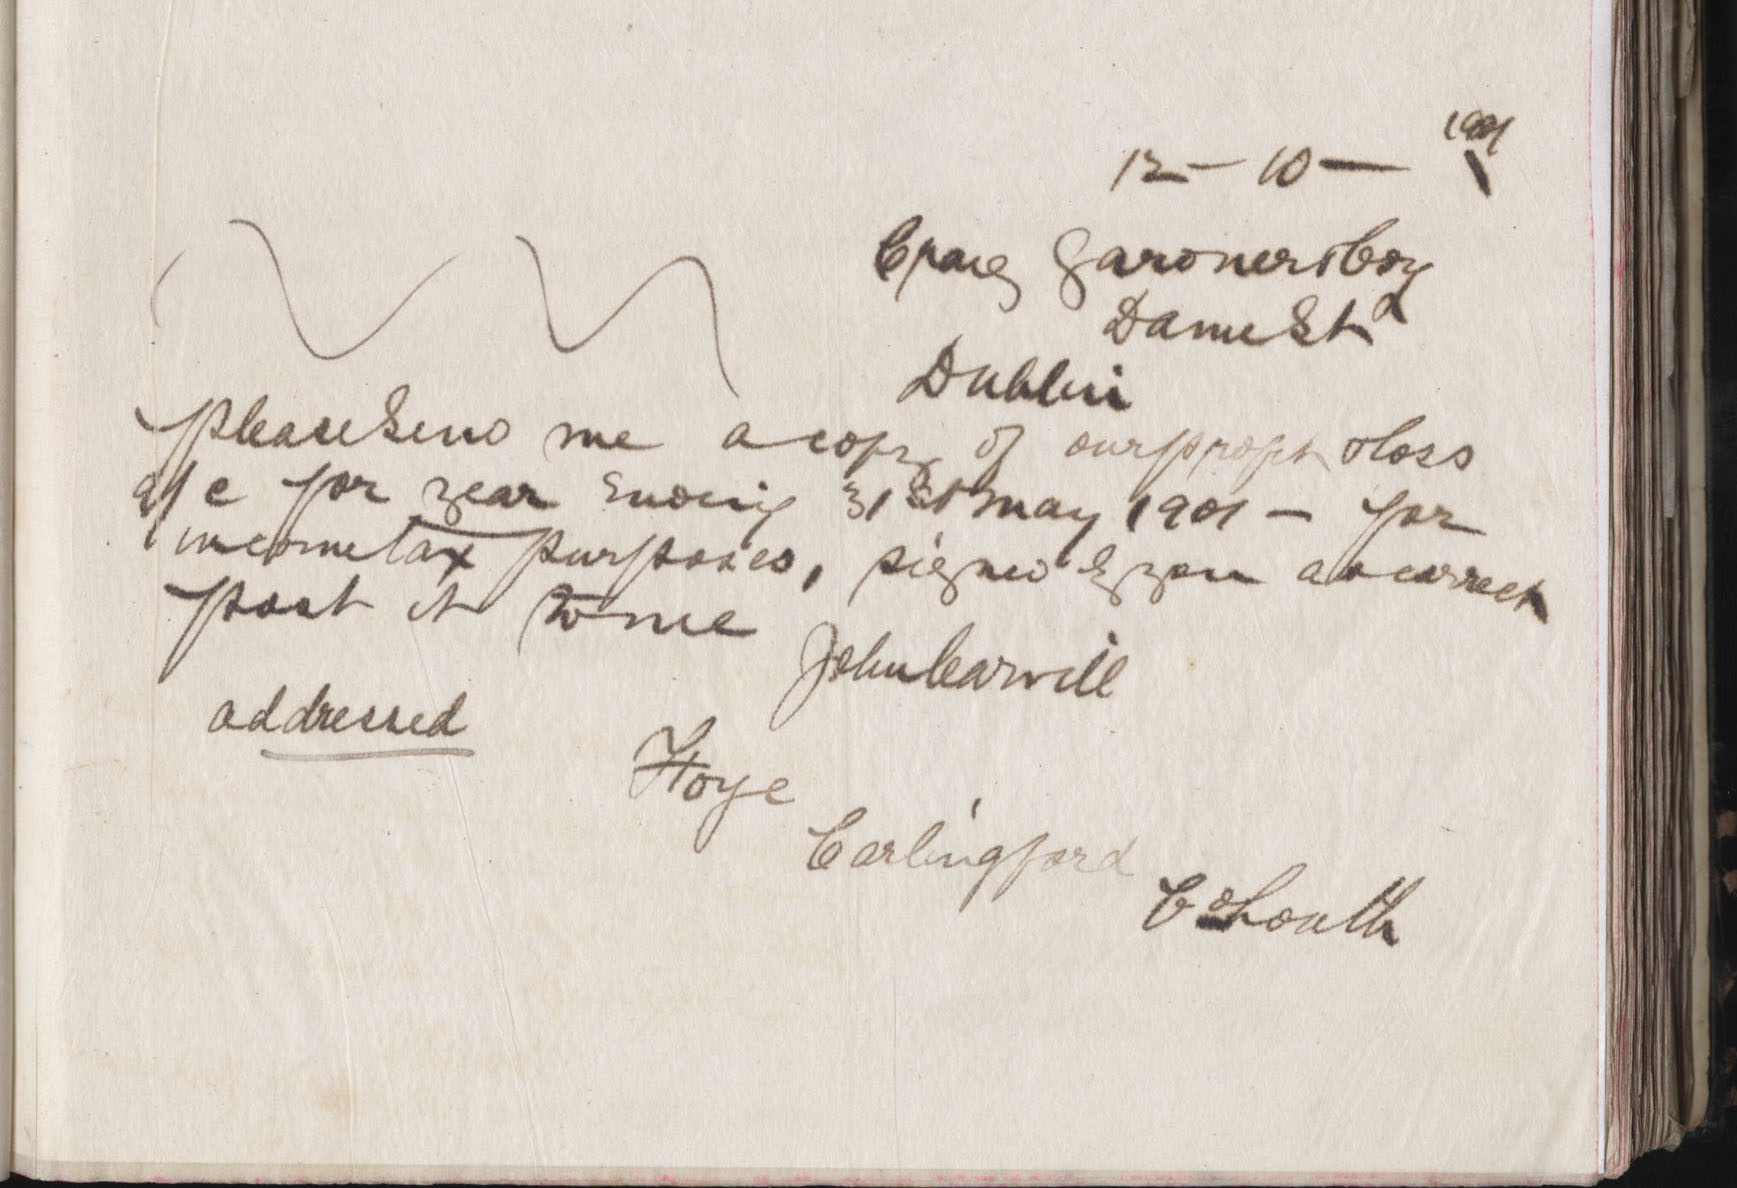 12 - 10 - 1901
Craig Gardner & Coy
Dame St
Dublin
please send me a copy of our profit & loss
a/c for year ending 31st May 1901 - for
income tax purposes, signed by you as correct
post it to me
John Carvill
addressed
Carlingford
Co Louth